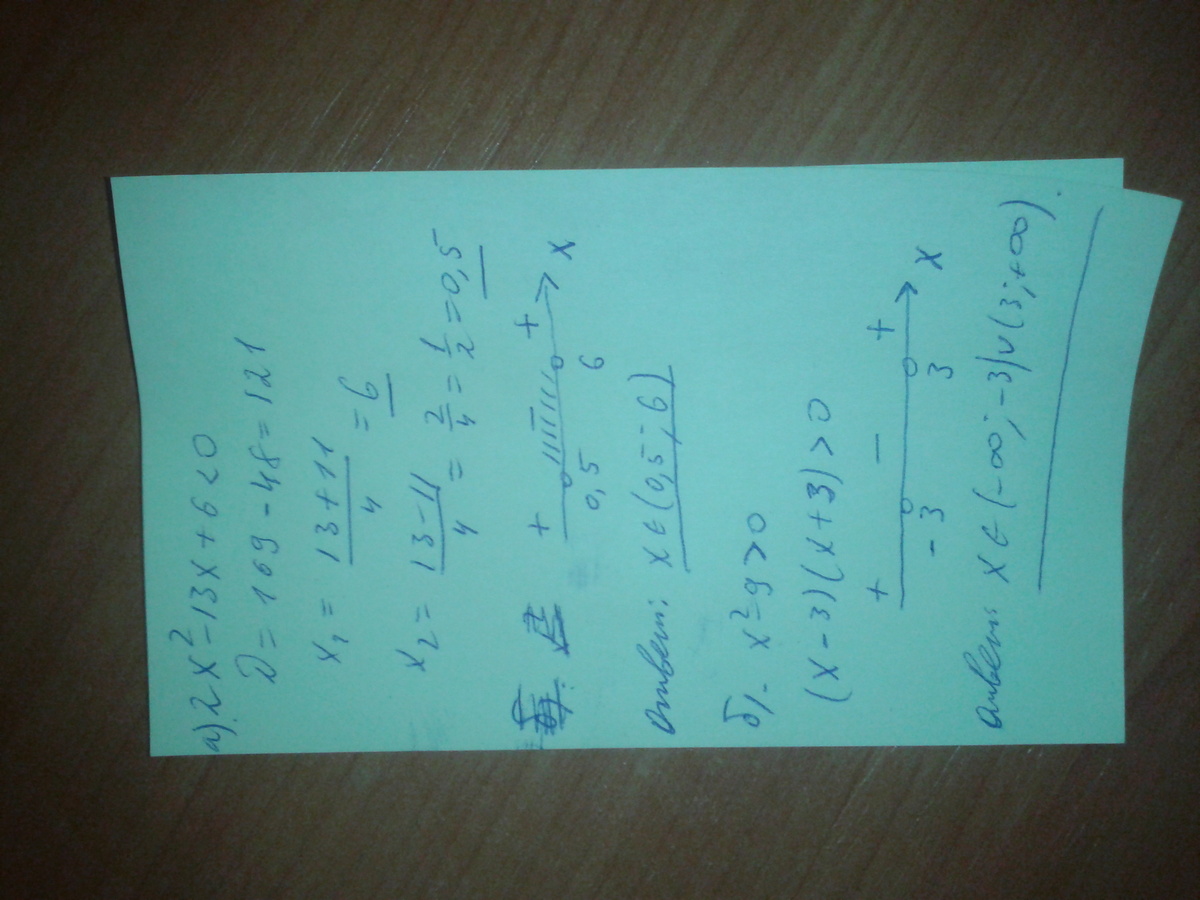 а). 2x² - 13x + 6 < 0
D = 169 - 48 = 121
x₁ = (13 + 11)/4 = 6
x₂ = (13 - 11)/4 = 2/4 = 1/2 = 0,5
+ - +
0,5 6 x
Ответ: x ∈ (0,5; 6)
б). x² - 9 > 0
(x - 3)(x + 3) > 0
+ - +
-3 3 x
Ответ: x ∈ (-∞; -3) ∪ (3; +∞).